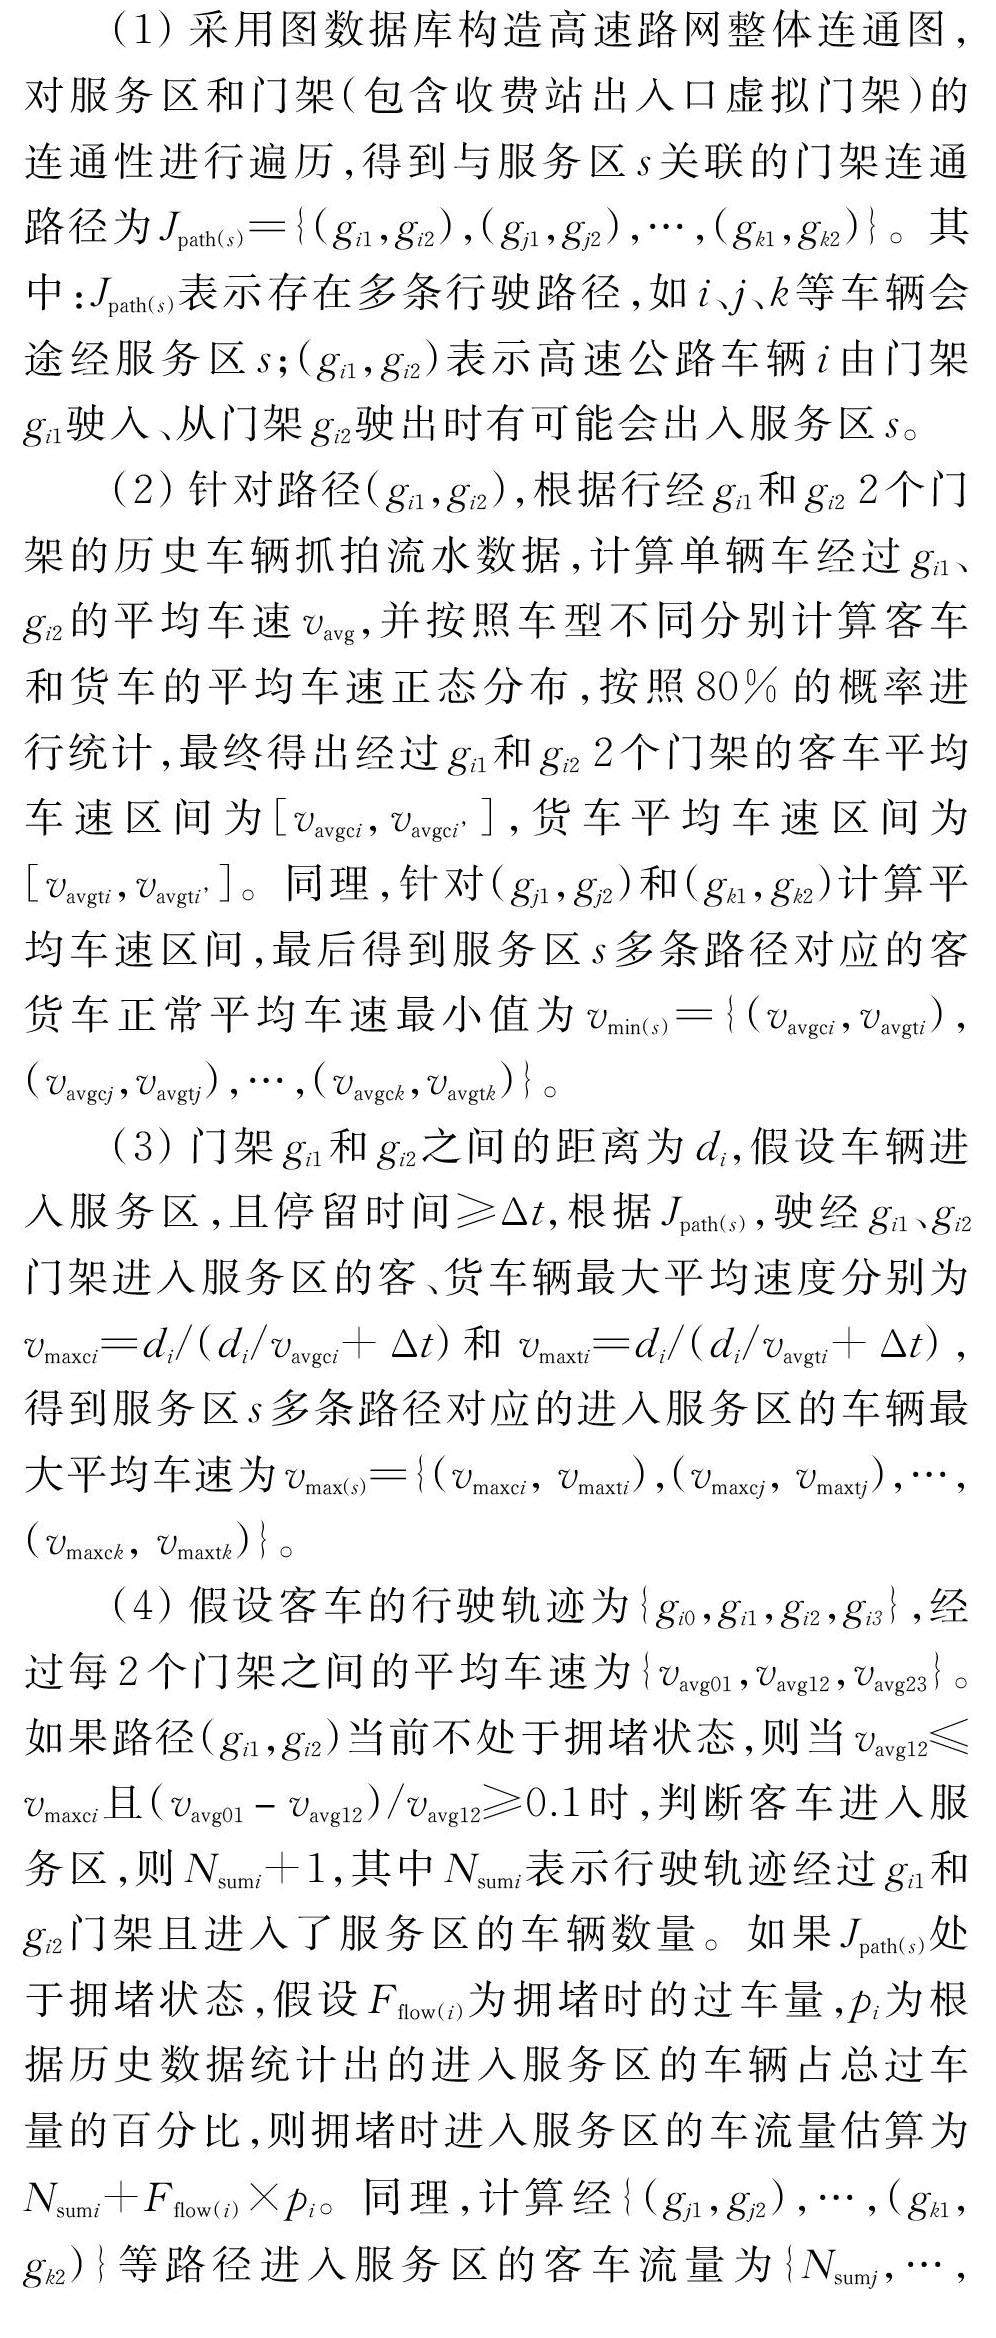 (1) 采用图数据库构造高速路网整体连通图,
对服务区和门架(包含收费站出入口虚拟门架)的
连通性进行遍历,得到与服务区s关联的门架连通
路径为Jpath(s)={(gi1,gi2),(gj1,gj2),…,(gk1,gk2)}。其
中:Jpath(s)表示存在多条行驶路径,如i、j、k等车辆会
途经服务区s;(gi1,gi2)表示高速公路车辆i由门架
gi1驶入、从门架gi2驶出时有可能会出入服务区s。
(2) 针对路径(gi1,gi2),根据行经gi1和gi2 2个门
架的历史车辆抓拍流水数据,计算单辆车经过gi1、
gi2的平均车速vavg,并按照车型不同分别计算客车
和货车的平均车速正态分布,按照80%的概率进
行统计,最终得出经过gi1和gi2 2个门架的客车平均
车速区间为[vavgci, vavgci’],货车平均车速区间为
[vavgti,vavgti’]。同理,针对(gj1,gj2)和(gk1,gk2)计算平
均车速区间,最后得到服务区s多条路径对应的客
货车正常平均车速最小值为vmin(s)={(vavgci,vavgti),
(vavgcj,vavgtj),…,(vavgck,vavgtk)}。
(3) 门架gi1和gi2之间的距离为di,假设车辆进
入服务区,且停留时间≥Δt,根据Jpath(s),驶经gi1、gi2
门架进入服务区的客、货车辆最大平均速度分别为
vmaxci=di/(di/vavgci+Δt)和vmaxti=di/(di/vavgti+Δt),
得到服务区s多条路径对应的进入服务区的车辆最
大平均车速为vmax(s)={(vmaxci, vmaxti),(vmaxcj, vmaxtj),…,
(vmaxck, vmaxtk)}。
(4) 假设客车的行驶轨迹为{gi0,gi1,gi2,gi3},经
过每2个门架之间的平均车速为{vavg01,vavg12,vavg23}。
如果路径(gi1,gi2)当前不处于拥堵状态,则当vavg12≤
vmaxci且(vavg01-vavg12)/vavg12≥0.1时,判断客车进入服
务区,则Nsumi+1,其中Nsumi表示行驶轨迹经过gi1和
gi2门架且进入了服务区的车辆数量。如果Jpath(s)处
于拥堵状态,假设Fflow(i)为拥堵时的过车量,pi为根
据历史数据统计出的进入服务区的车辆占总过车
量的百分比,则拥堵时进入服务区的车流量估算为
Nsumi+Fflow(i)×pi。同理,计算经{(gj1,gj2),…,(gk1,
gk2)}等路径进入服务区的客车流量为{Nsumj,…,